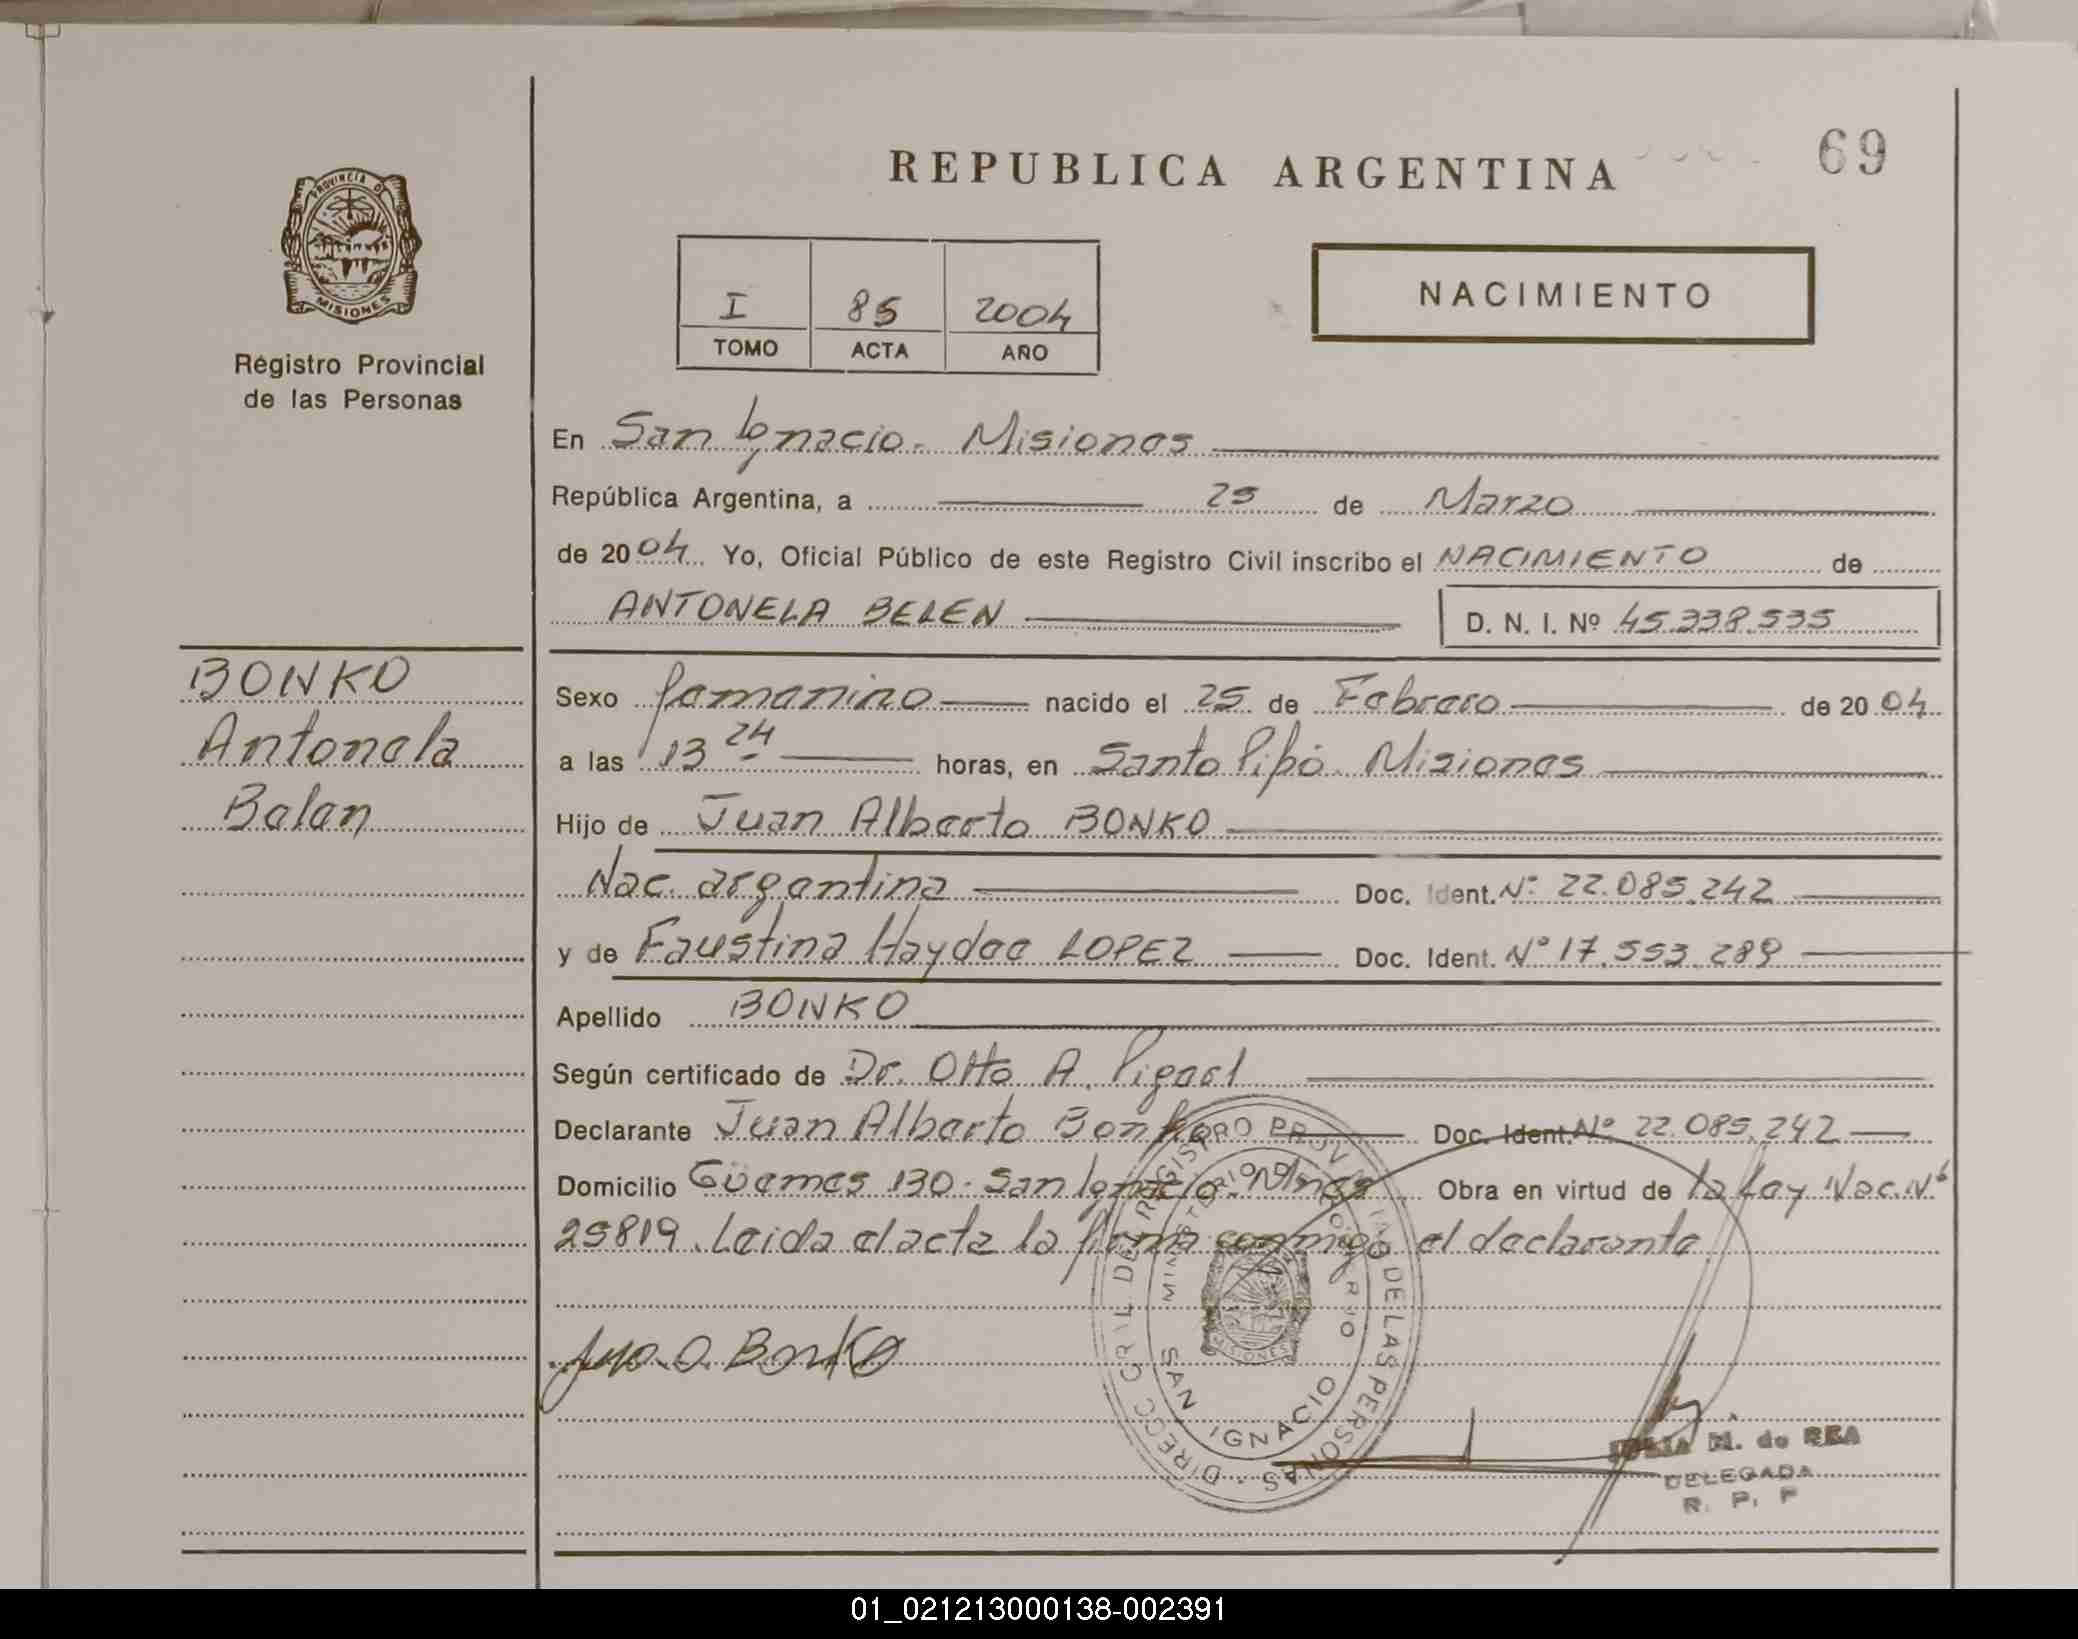 69
REPUBLICA ARGENTINA
PROVINCIA DE MISIONES
Registro Provincial
de las Personas
I 85 2004
TOMO ACTA AÑO
NACIMIENTO
En San Ignacio. Misiones
República Argentina, a 25 de Marzo
de 2004 Yo, Oficial Público de este Registro Civil inscribo el NACIMIENTO de
ANTONELA BELEN D. N. I. Nº 45.338.535
BONKO
Antonela
Belen
Sexo femenino nacido el 25 de Febrero de 2004
a las 13 24 horas, en Santo Pipó. Misiones
Hijo de Juan Alberto BONKO
Nac. argentina Doc. Ident. Nº 22.085.242
y de Faustina Haydee LOPEZ Doc. Ident. Nº 17.553.289
Apellido BONKO
Según certificado de Dr. Otto A.
Declarante Juan Alberto Bonko Doc. Ident. Nº 22.085.242
Domicilio Güemes 130. San Ignacio. Mnes Obra en virtud de la Ley Nac. Nº
25819. Leida el acta la firma conmigo el declarante.
DIRECC GRAL DEL REGISTRO PROVINCIAL DE LAS PERSONAS
MINISTERIO DE GOBIERNO
MISIONES
SAN IGNACIO
Juan A. Bonko
M. de REA
DELEGADA
R. P. P
01_021213000138-002391